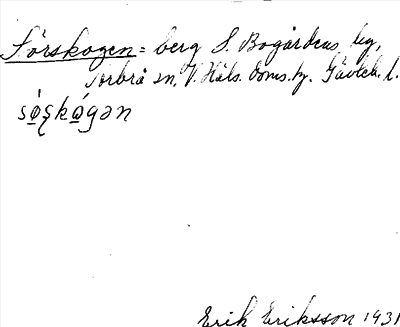 Sörskogen = berg S. Bogårdens by,
Torbrå sn, V. Häls. doms. h. Gävleb. l.
sö̀ʂkó̱gən
Erik Eriksson 1931